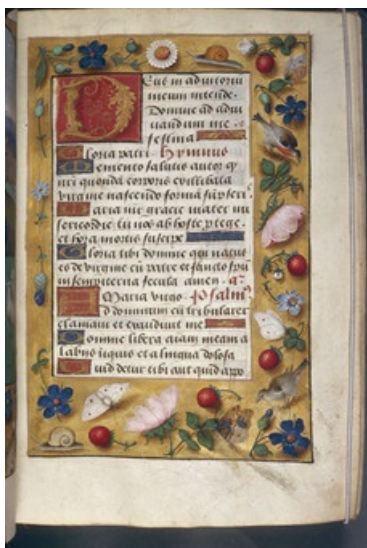 Deus in adiutoriu
meum intende.
Domine ad adiu
uandum me
festina
Gloria patri Hymnus
Memento salutis autor q
nri quonda corporis ex illibata
virgine nascendo forma sūpseri
Maria mr gracie mater mi
sericordie tu nos ab hoste ptege.
et hora mortis suscipe
Gloria tibi domine qui natus
es de virgine cū patre et sancto spū
in sempiterna secula amen. a
Maria virgo psalm
Ad dominum cū tribularer
clamaui et exaudiuit me
Domine libera aīam meam a
labiis iniquis et a lingua dolosa
Quid detur tibi aut quid appo